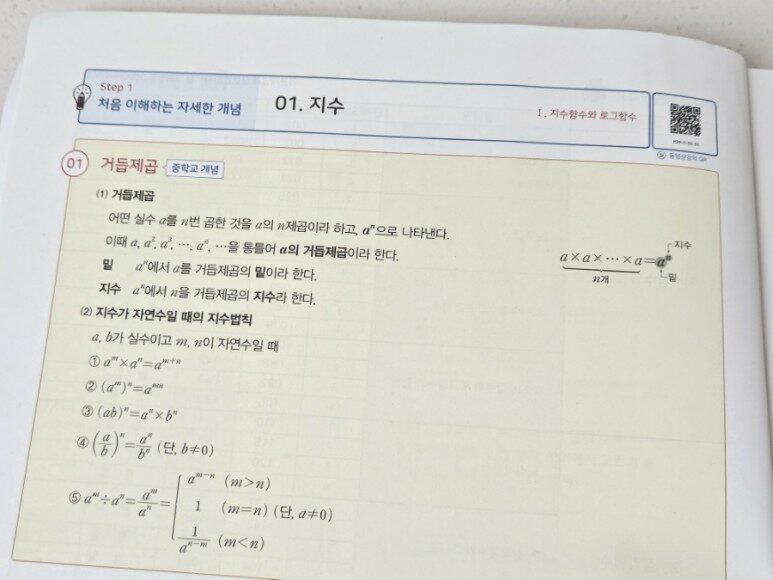 Step 1
처음 이해하는 자세한 개념
01. 지수
Ⅰ. 지수함수와 로그함수
동영상강의 QR
01 거듭제곱 중학교 개념
(1) 거듭제곱
어떤 실수 a를 n번 곱한 것을 a의 n제곱이라 하고, aⁿ으로 나타낸다.
이때 a, a², a³, …, aⁿ, …을 통틀어 a의 거듭제곱이라 한다.
밑 aⁿ에서 a를 거듭제곱의 밑이라 한다.
지수 aⁿ에서 n을 거듭제곱의 지수라 한다.
a×a×⋯×a=aⁿ
n개
지수
밑
(2) 지수가 자연수일 때의 지수법칙
a, b가 실수이고 m, n이 자연수일 때
① aᵐ×aⁿ=aᵐ⁺ⁿ
② (aᵐ)ⁿ=aᵐⁿ
③ (ab)ⁿ=aⁿ×bⁿ
④ (a/b)ⁿ=aⁿ/bⁿ (단, b≠0)
⑤ aᵐ÷aⁿ=aᵐ/aⁿ=
aᵐ⁻ⁿ (m>n)
1 (m=n) (단, a≠0)
1/aⁿ⁻ᵐ (m<n)